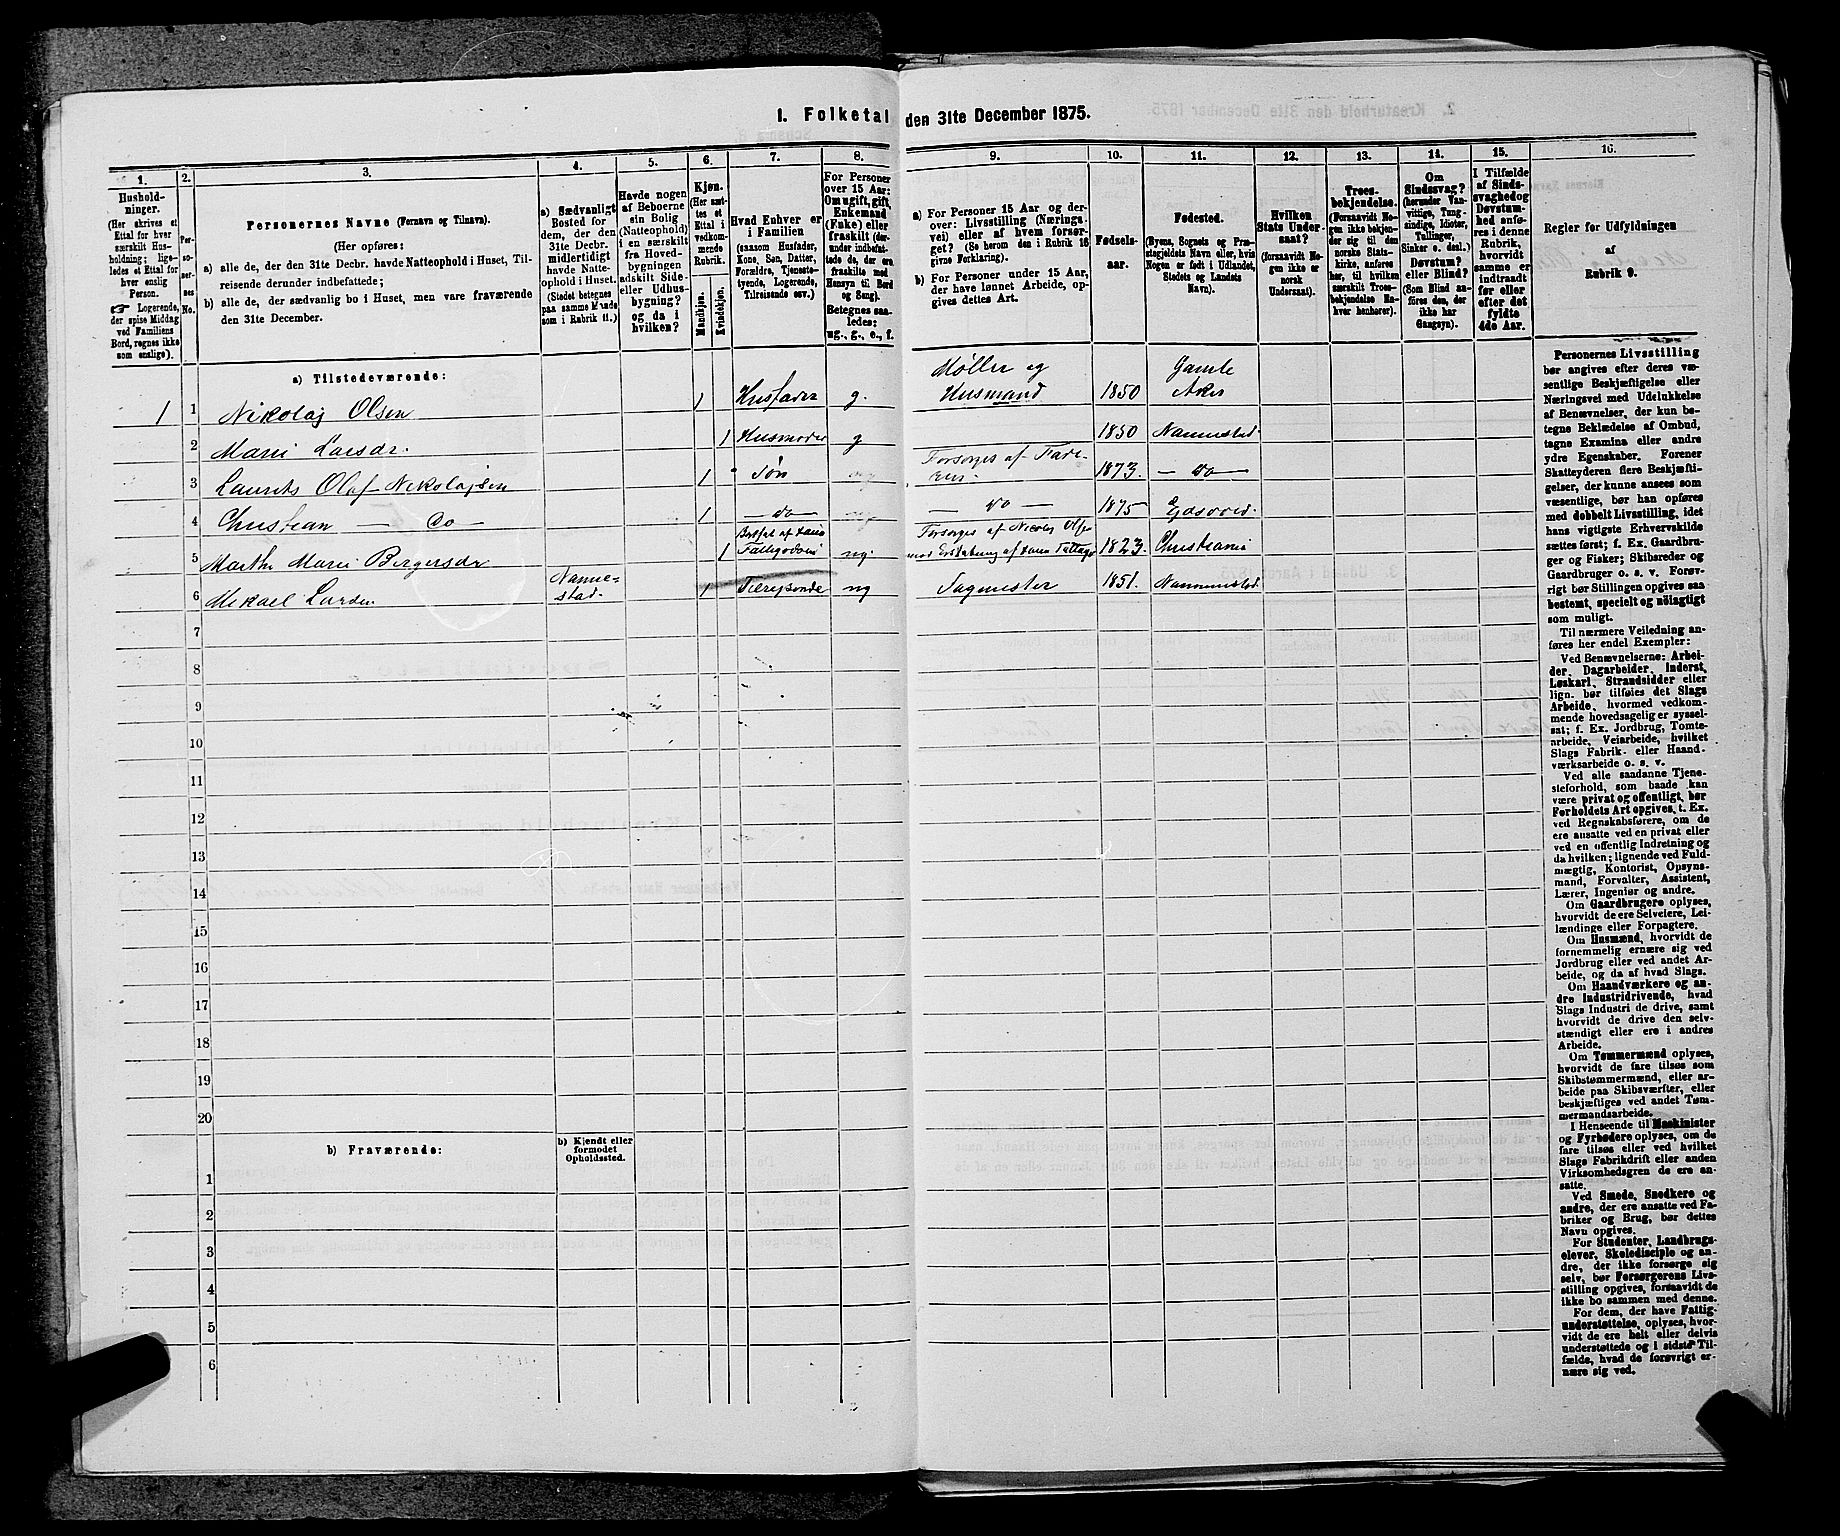 1. Folketal den 31te December 1875.
1.
2.
3.
4.
5.
6.
7.
8.
9.
10.
11.
12.
13.
14.
15.
16.
Hushold-
ninger.
(Her skrives et
Ettal for hver
særskilt Hus-
holdning; lige-
ledes et Ettal for
hver enslig
Person.
☞ Logerende,
der spise Middag
ved Familiens
Bord, regnes ikke
som enslige).
Per-
soner-
nes
No.
Personernes Navne (Fornavn og Tilnavn).
(Her opføres:
a) alle de, der den 31te Decbr. havde Natteophold i Huset, Til-
reisende derunder indbefattede;
b) alle de, der sædvanlig bo i Huset, men vare fraværende
den 31te December.
a) Sædvanligt
Bosted for
dem, der den
31te Decbr.
midlertidigt
havde Natte-
ophold i Huset.
(Stedet betegnes
paa samme Maade
som i Rubrik 11.)
Havde nogen
af Beboerne
sin Bolig
(Natteophold)
i en særskilt
fra Hoved-
bygningen
adskilt Side-
eller Udhus-
bygning?
og da i
hvilken?
Kjøn.
(Her sæt-
tes et
Ettal i
vedkom-
mende
Rubrik.
Mandkjøn.
Kvindekjøn.
Hvad Enhver er
i Familien
(saasom Husfader,
Kone, Søn, Datter,
Forældre, Tjeneste-
tyende, Logerende,
Tilreisende osv.)
For Personer
over 15 Aar:
Om ugift, gift,
Enkemand
(Enke) eller
fraskilt (der-
under indbefat-
tede de, der ere
fraskilte med
Hensyn til Bord
og Seng).
Betegnes saa-
ledes:
ug., g., e., f.
a) For Personer 15 Aar og der-
over: Livsstilling (Nærings-
vei) eller af hvem forsør-
get? (Se herom den i Rubrik 16
givne Forklaring).
b) For Personer under 15 Aar,
der have lønnet Arbeide, op-
gives dettes Art.
Fødsels-
aar.
Fødested.
(Byens, Sognets og Præ-
stegjeldets Navn eller, hvis
Nogen er født i Udlandet,
Stedets og Landets
Navn).
Hvilken
Stats Under-
saat?
(forsaavidt No-
gen ikke er
norsk
Undersaat).
Troes-
bekjendelse.
(Forsaavidt No-
gen ikke bekjen-
der sig til den
norske Stats-
kirke, anføres
her, til hvilken
særskilt Troes-
bekjendelse En-
hver henhører).
Om
Sindssvag?
(herunder Van-
vittige, Tung-
sindige, Idioter,
Tullinger,
Sinker o. desl.)
Døvstum?
eller Blind?
(Som Blind an-
føres den, der
ikke har
Gangsyn).
I Tilfælde
af Sinds-
svaghed og
Døvstum-
hed anfø-
res i denne
Rubrik,
hvorvidt
samme er
indtraadt
før eller
efter det
fyldte
4de Aar.
Regler for Udfyldningen
af
Rubrik 9.
a) Tilstedeværende:
1 1 Nikolaj Olsen 1 Husfader g. Møller og Husmand 1850 Gamle Aker
2 Marie Larsdr. 1 Husmoder g 1850 Nannestad.
3 Laurits Olaf Nikolajsen 1 Søn ug Forsørges af Fade-ren 1873. — do —
4 Christian — do — 1 — do — ug — do — 1875 Eidsvold.
5 Marthe Marie Bergersdr 1 ug. Forsørges af 1823. Christiania
6 Mikael Larsen Nanne-stad. 1 Tilreisende ug Sagmester 1851. Nannestad.
7
8
9
10
11
12
13
14
15
16
17
18
19
20
b) Fraværende:
b) Kjendt eller
formodet
Opholdssted.
1
2
3
4
5
6
Personernes Livsstilling
bør angives efter deres væ-
sentlige Beskjæftigelse eller
Næringsvei med Udelukkelse
af Benævnelser, der kun be-
tegne Beklædelse af Ombud,
tagne Examina eller andre
ydre Egenskaber. Forener
Skatteyderen flere Beskjæfti-
gelser, der kunne ansees som
væsentlige, bør han opføres
med dobbelt Livsstilling, idet
hans vigtigste Erhvervskilde
sættes først; f. Ex. Gaardbru-
ger og Fisker; Skibsreder og
Gaardbruger o. s. v. Forøv-
rigt bør Stillingen opgives saa
bestemt, specielt og nøiagtigt
som muligt.
Til nærmere Veiledning an-
føres her endel Exempler:
Ved Benævnelserne: Arbei-
der, Dagarbeider, Inderst,
Løskarl, Strandsidder eller
lign. bør tilføies det Slags
Arbeide, hvormed vedkom-
mende hovedsagelig er syssel-
sat; f. Ex. Jordbrug, Tomte-
arbeide, Veiarbeide, hvilket
Slags Fabrik- eller Haand-
værksarbeide o. s. v.
Ved alle saadanne Tjene-
steforhold, som baade kan
være privat og offentligt, bør
Forholdets Art opgives, t. Ex.
ved Regnskabsførere, om de
ere ansatte ved en privat eller
ved en offentlig Indretning og
da hvilken; lignende ved Fuld-
mægtig, Kontorist, Opsyns-
mand, Forvalter, Assistent,
Lærer, Ingeniør og andre.
Om Gaardbrugere oplyses,
hvorvidt de ere Selveiere, Lei-
lændinge eller Forpagtere.
Om Husmænd, hvorvidt de
fornemmelig ernære sig ved
Jordbrug eller ved andet Ar-
beide, og da af hvad Slags.
Om Haandværkere og an-
dre Industridrivende, hvad
Slags Industri de drive, samt
hvorvidt de drive den selv-
stændigt eller ere i andres
Arbeide.
Om Tømmermænd oplyses,
hvorvidt de fare tilsøs som
Skibstømmermænd, eller ar-
beide paa Skibsværfter, eller
beskjæftiges ved andet Tøm-
mermandsarbeide.
I Henseende til Maskinister
og Fyrbødere oplyses, om de
fare tilsøs eller ved hvilket
Slags Fabrikdrift eller anden
Virksomhedsgren de ere an-
satte.
Ved Smede, Snedkere og
andre, der ere ansatte ved Fa-
briker og Brug, bør dettes
Navn opgives.
For Studenter, Landbrugs-
elever, Skoledisciple og an-
dre, der ikke forsørge sig
selv, bør Forsørgerens Livs-
stilling opgives, forsaavidt de
ikke bo sammen med denne.
For dem, der have Fattig-
understøttelse, oplyses, hvor-
vidt de ere helt eller delvis
understøttede og i sidste Til-
fælde, hvad de forøvrigt er-
nære sig ved.